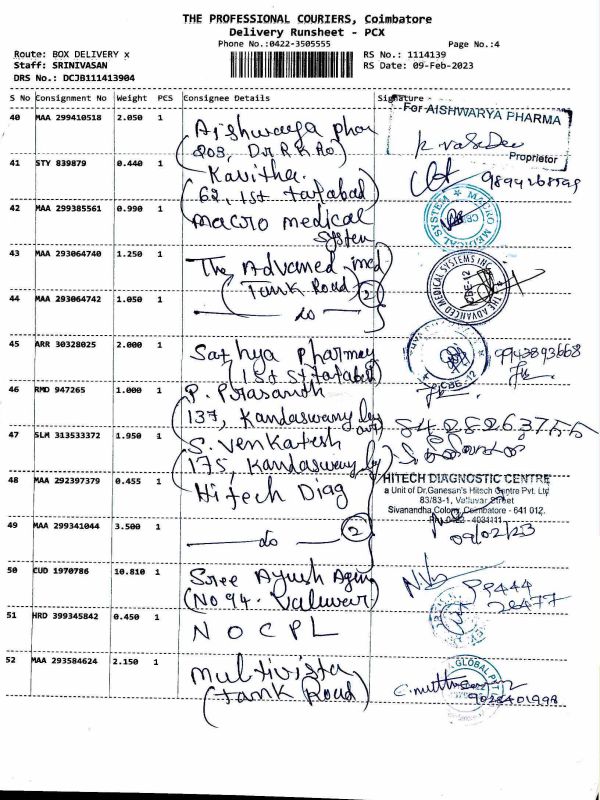 THE PROFESSIONAL COURIERS, Coimbatore
Delivery Runsheet - PCX
Phone No.:0422-3505555
Page No.:4
Route: BOX DELIVERY x
RS No.: 1114139
Staff: SRINIVASAN
RS Date: 09-Feb-2023
DRS No.: DCJB111413904
S No Consignment No Weight PCS Consignee Details Signature
40 MAA 299410518 2.050 1
Aishwarya phar
203, Dr R K Ro
For AISHWARYA PHARMA
K. Vasudev
Proprietor
41 STY 839879 0.440 1
Kavitha.
62, 1st tatabad
42 MAA 299385561 0.990 1
macro medical
System
MACRO MEDICAL SYSTEM
43 MAA 293064740 1.250 1
The Advamed med
(Tank Road) 2
THE ADVANCED MEDICAL SYSTEMS INC
CBE-12
44 MAA 293064742 1.050 1
— do —
45 ARR 30328025 2.000 1
Sathya Pharmey
(1st St tatabad)
9943893668
CBE-12
46 RMD 947265 1.000 1
P. Prasanth
137, Kandaswamy lay
47 SLM 313533372 1.950 1
S. Venkatesh
175, Kandaswamy lay
48 MAA 292397379 0.455 1
Hitech Diag
HITECH DIAGNOSTIC CENTRE
a Unit of Dr.Ganesan's Hitech Centre Pvt. Ltd
83/83-1, Valluvar Street
Sivanandha Colony, Coimbatore - 641 012.
09/02/23
49 MAA 299341044 3.500 1
— do — 2
50 CUD 1970786 10.810 1
Sree Ayush Agen
(No 94. Valuvar)
99444
26477
51 HRD 399345842 0.450 1
NOCPL
52 MAA 293584624 2.150 1
multivista
(Tank Road)
GLOBAL PVT
9028401998